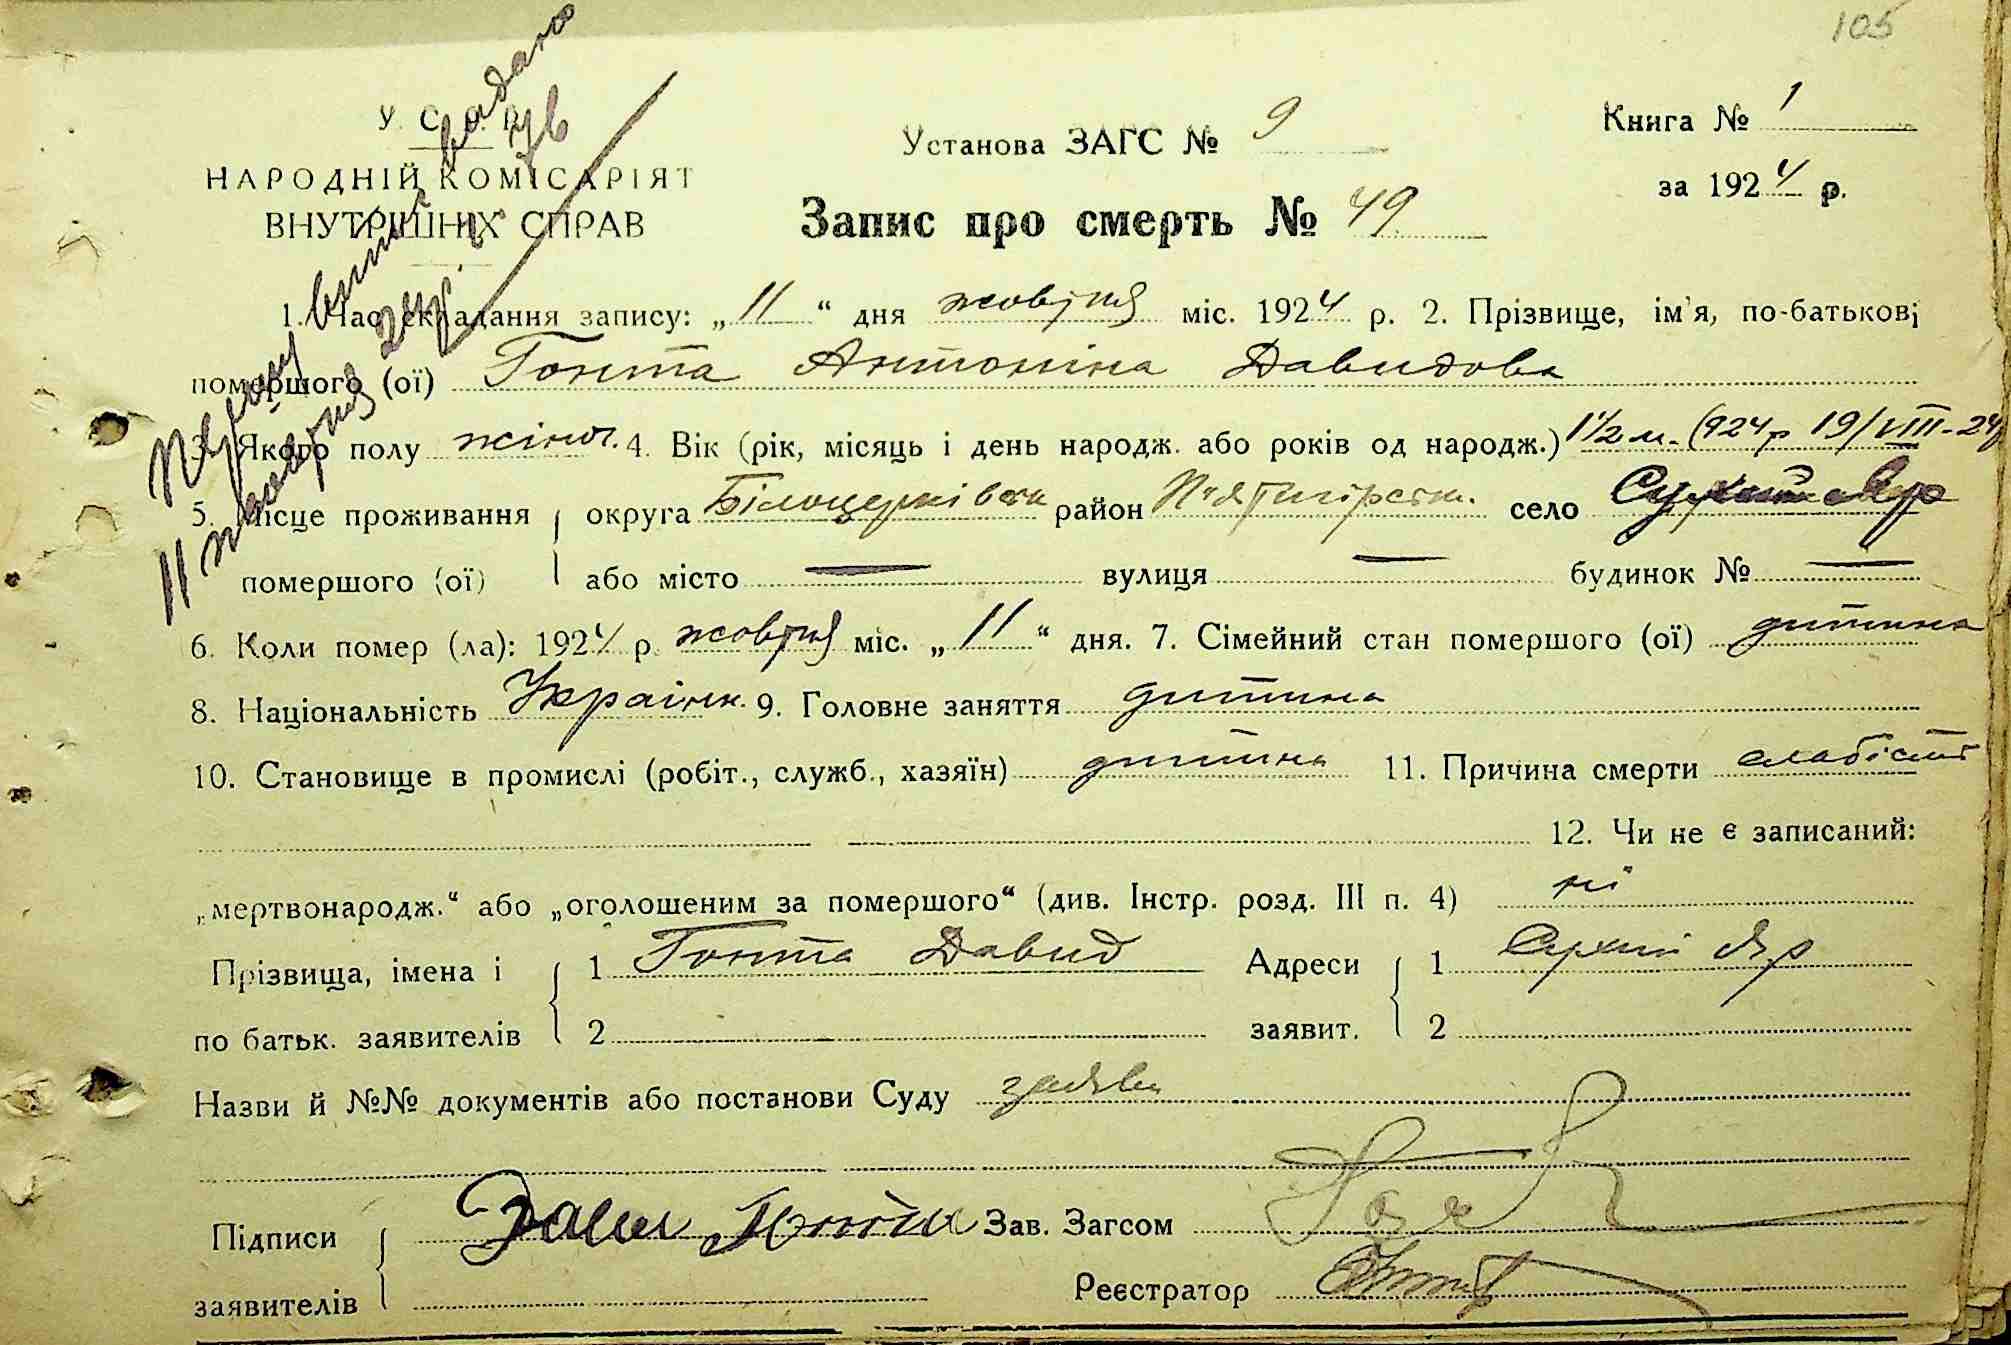 105
У. С. Р. Р.
НАРОДНІЙ КОМІСАРІЯТ
ВНУТРІШНІХ СПРАВ
Установа ЗАГС № 9
Книга № 1
за 1924 р.
Запис про смерть № 49
Першу випись видано
11 жовтня 24 р. № 76
1. Час складання запису: „11“ дня жовтня міс. 1924 р. 2. Прізвище, ім'я, по-батькові
помершого (ої) Гонта Антоніна Давидова
3. Якого полу жіноч. 4. Вік (рік, місяць і день народж. або років од народж.) 1½ м. (924 р 19/VIII-24)
5. Місце проживання округа Білоцерківськ район П'ятигірськ. село Сухий Яр
помершого (ої) або місто — вулиця — будинок № —
6. Коли помер (ла): 1924 р. жовтня міс. „11“ дня. 7. Сімейний стан помершого (ої) дитина
8. Національність Україн. 9. Головне заняття дитина
10. Становище в промислі (робіт., служб., хазяїн) дитина 11. Причина смерти слабість
12. Чи не є записаний:
„мертвонародж.“ або „оголошеним за помершого“ (див. Інстр. розд. III п. 4) ні
Прізвища, імена і 1 Гонта Давид Адреси 1 Сухий Яр
по батьк. заявителів 2 заявит. 2
Назви й №№ документів або постанови Суду заява
Підписи Давид Гонта Зав. Загсом
заявителів Реєстратор